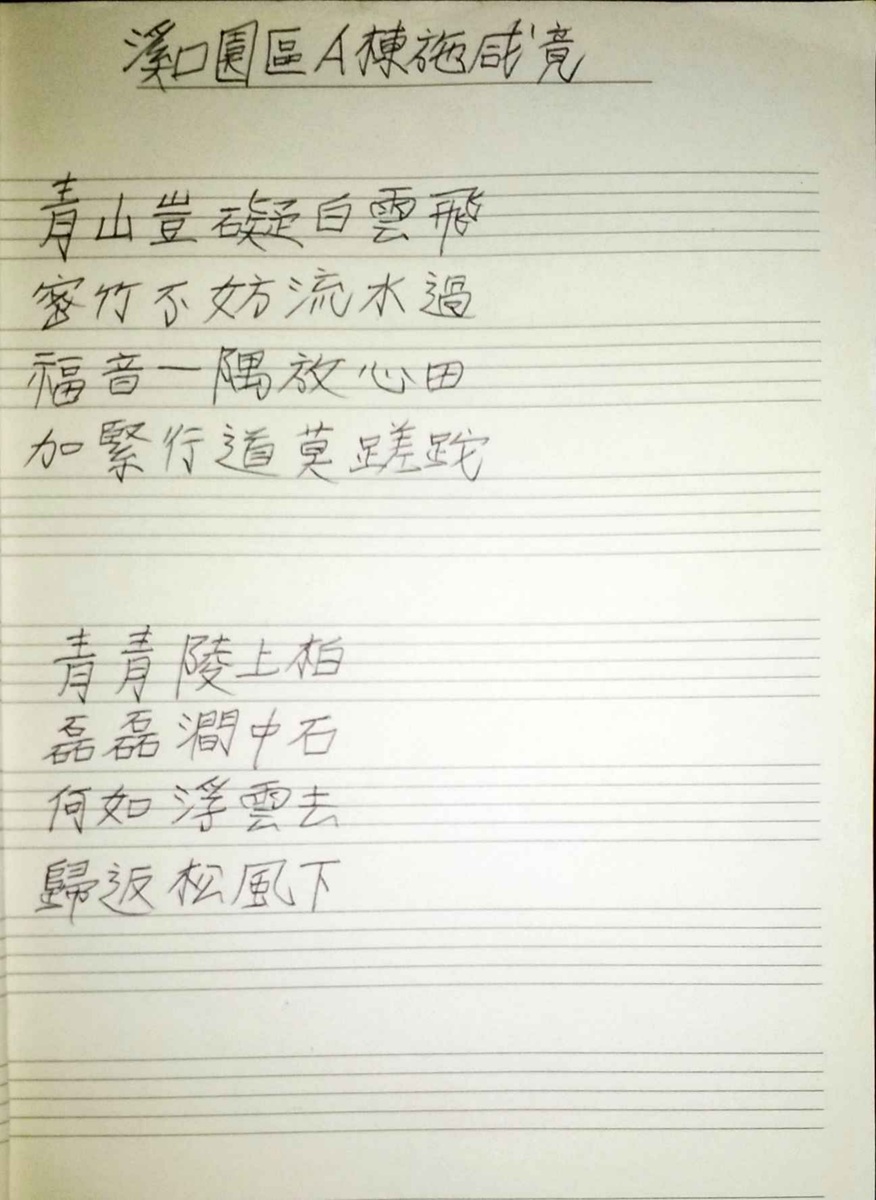 溪口園區A棟施咸竟
青山豈礙白雲飛
密竹不妨流水過
福音一隅放心田
加緊行道莫蹉跎
青青陵上柏
磊磊澗中石
何如浮雲去
歸返松風下